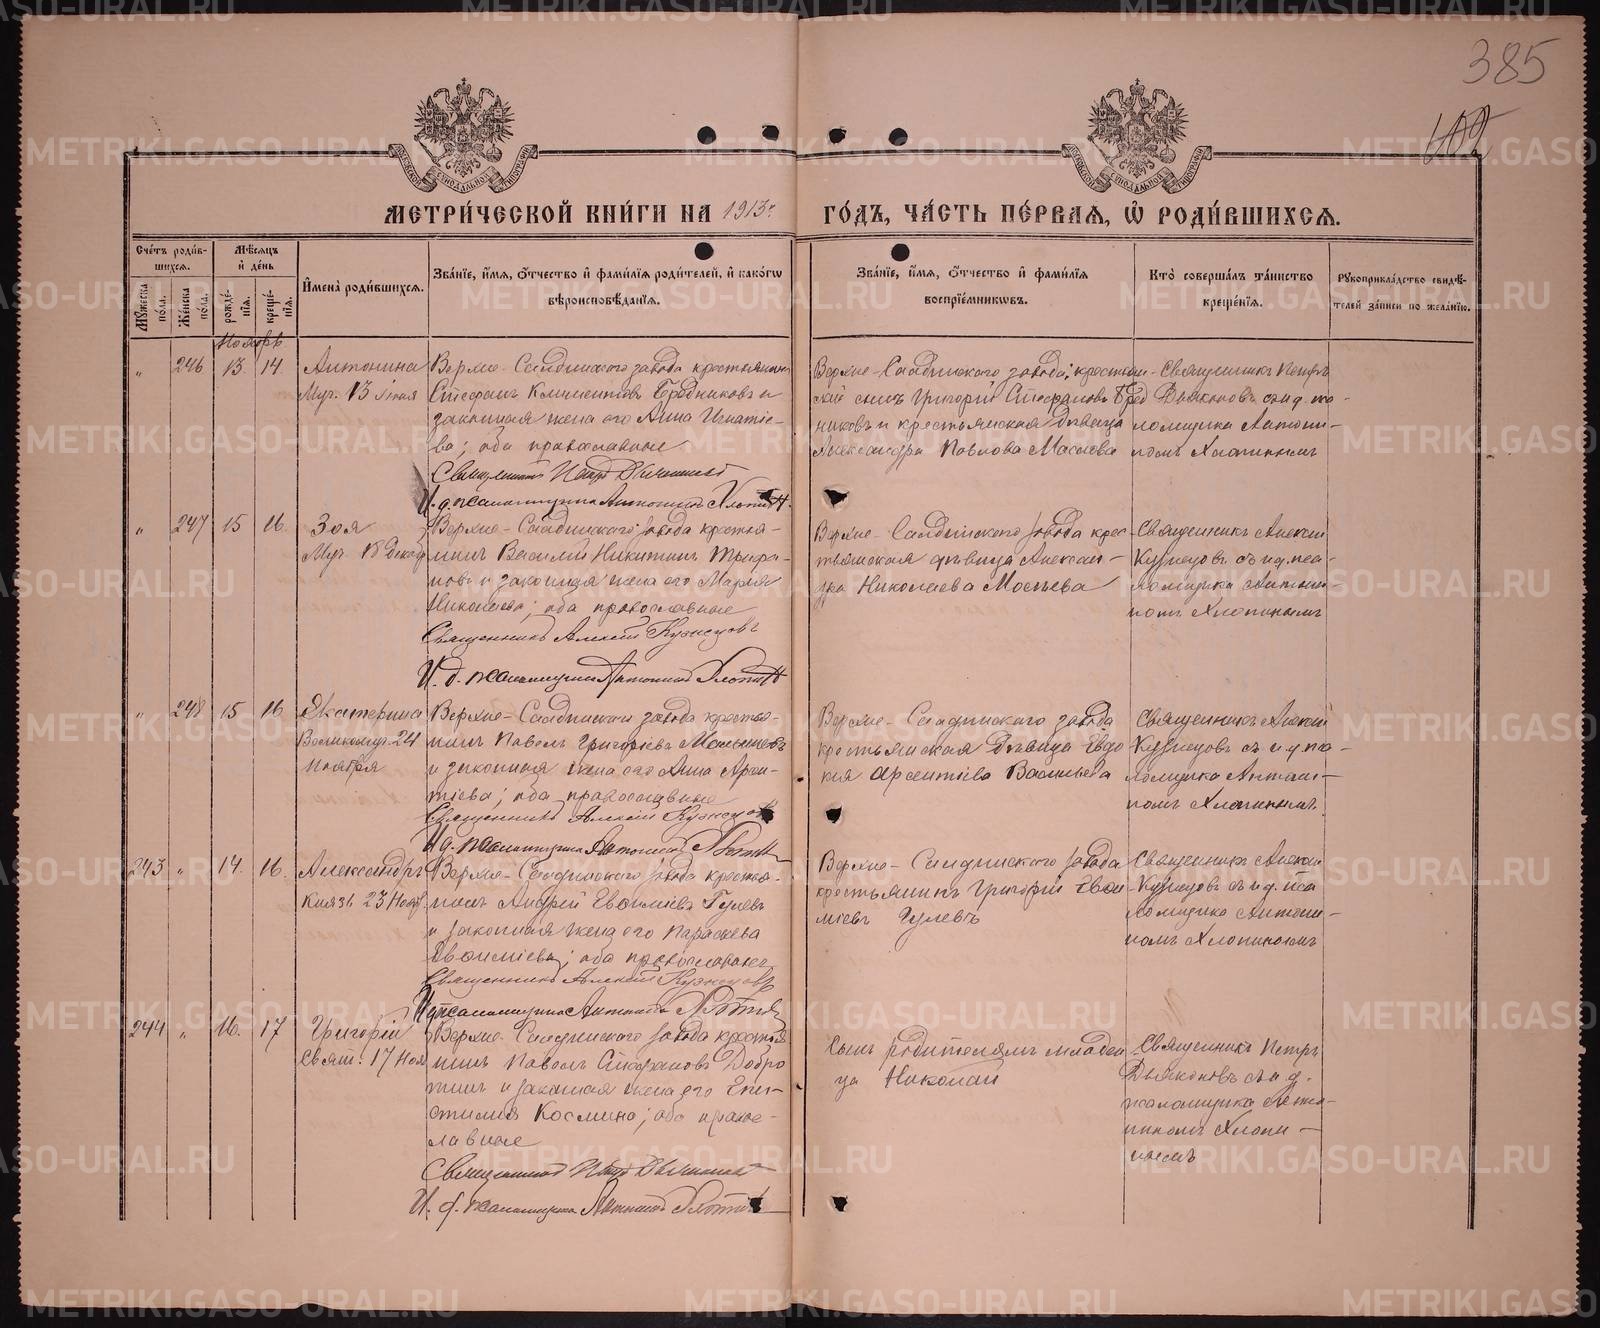 385
402
МОСКОВСКОЙ СѴНОДАЛЬНОЙ ТИПОГРАФІИ
МОСКОВСКОЙ СѴНОДАЛЬНОЙ ТИПОГРАФІИ
МЕТРИ́ЧЕСКОЙ КНИ́ГИ НА 1913 г. ГО́ДЪ, ЧА́СТЬ ПЕ́РВАЯ, Ѡ҆ РОДИ́ВШИХСЯ.
Сче́тъ роди́вшихся.
Мꙋ́жеска по́ла.
Же́нска по́ла.
Мѣ́сяцъ и҆ де́нь
рожде́нїя.
креще́нїя.
И҆мена̀ роди́вшихся.
Зва́нїе, и҆́мя, ѻ҆́тчество и҆ фами́лїя роди́телей, и҆ како́гѡ вѣроисповѣ́данїя.
Зва́нїе, и҆́мя, ѻ҆́тчество и҆ фами́лїя воспрїе́мникѡвъ.
Кто̀ соверша́лъ та́инство креще́нїя.
Рꙋкоприкла́дство свидѣ́телей за́писи по жела́нїю.
Ноябрь
„ 246 13. 14.
Антонина
Муч. 13 Іюня
Верхне-Салдинскаго завода крестьянинъ
Стефанъ Климентовъ Бредниковъ и
законная жена его Анна Игнатіе-
ва; оба православные
Священникъ Петръ Дьяконовъ
И. д. псаломщика Антонинъ Хлопинъ.
Верхне-Салдинскаго завода крестьян-
скій сынъ Григорій Стефановъ Бред
никовъ и крестьянская дѣвица
Александра Павлова Маслова
Священникъ Петръ
Дьяконовъ съ и. д. пса-
ломщика Антони-
номъ Хлопинымъ
„ 247 15 16.
Зоя
Муч. 18 Декаб
Верхне-Салдинскаго завода крестья-
нинъ Василій Никитинъ
новъ и законная жена его Марія
Николаева; оба православные
Священникъ Алексій Кузнецовъ
И. д. псаломщика Антонинъ Хлопинъ
Верхне-Салдинскаго завода крес-
тьянская дѣвица Алексан-
дра Николаева Мосеева
Священникъ Алексій
Кузнецовъ съ и. д. пса-
ломщика Антони-
номъ Хлопинымъ
„ 248 15 16
Екатерина
Великомуч. 24
Ноября
Верхне-Салдинскаго завода крестья-
нинъ Павелъ Григоріевъ
и законная жена его Анна Арсен-
тіева; оба православные
Священникъ Алексій Кузнецовъ
И. д. псаломщика Антонинъ Хлопинъ
Верхне-Салдинскаго завода
крестьянская дѣвица Евдо
кія Арсентіева Васильева
Священникъ Алексій
Кузнецовъ съ и. д. пса-
ломщика Антони-
номъ Хлопинымъ.
243 „ 14. 16.
Александръ
Князь 23 Нояб.
Верхне-Салдинскаго завода крестья-
нинъ Андрей Евфиміевъ Гулевъ
и законная жена его Параскева
Евфиміева; оба православные
Священникъ Алексій Кузнецовъ
И. д. псаломщика Антонинъ Хлопинъ
Верхне-Салдинскаго завода
крестьянинъ Григорій Евфи
міевъ Гулевъ
Священникъ Алексій
Кузнецовъ съ и. д. пса
ломщика Антони-
номъ Хлопинымъ
244 „ 16. 17
Григорій
Свят. 17 Ноя
Верхне-Салдинскаго завода крестья
нинъ Павелъ Стефановъ Добро
тинъ и законная жена его Епи-
стимія Космина; оба право-
славные
Священникъ Петръ Дьяконовъ
И. д. псаломщика Антонинъ Хлопинъ
Сынъ родителямъ младен
ца Николай
Священникъ Петръ
Дьяконовъ съ и. д.
псаломщика Анто-
ниномъ Хлопи-
нымъ
METRIKI.GASO-URAL.RU